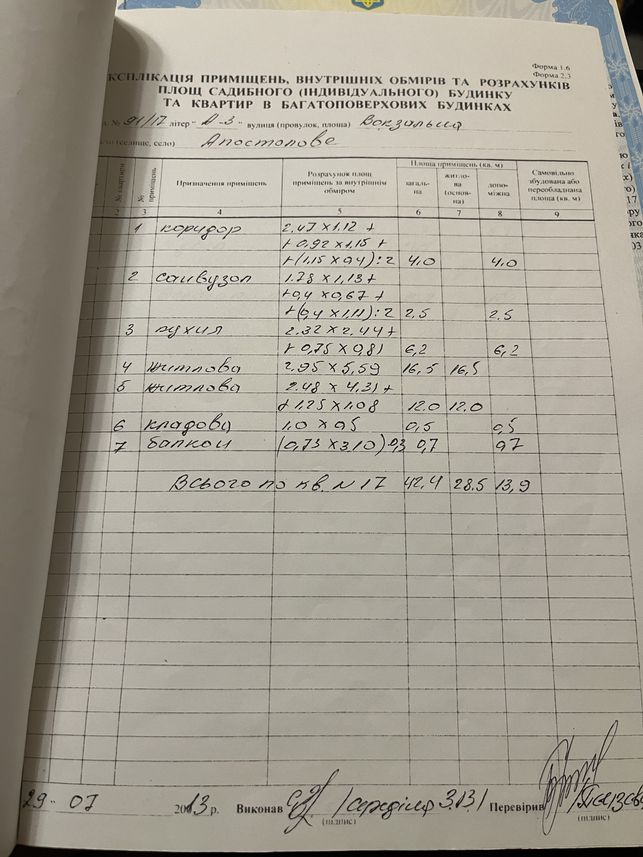 Форма 1.6
Форма 2.3
КСПЛІКАЦІЯ ПРИМІЩЕНЬ, ВНУТРІШНІХ ОБМІРІВ ТА РОЗРАХУНКІВ
ПЛОЩ САДИБНОГО (ІНДИВІДУАЛЬНОГО) БУДИНКУ
ТА КВАРТИР В БАГАТОПОВЕРХОВИХ БУДИНКАХ
№ 91/17 літер "А-3" вулиця (провулок, площа) Вокзальна
(селище, село) Апостолове
№ квартири № приміщень Призначення приміщень Розрахунок площ приміщень за внутрішнім обміром Площа приміщень (кв. м) загальна житлова (основна) допоміжна Самовільно збудована або переобладнана площа (кв. м)
2 3 4 5 6 7 8 9
1 коридор 2.47 x 1.12 +
+ 0,92 x 1.15 +
+ (1,15 x 0,4) : 2 4,0 4,0
2 санвузол 1.78 x 1,13 +
+ 0,4 x 0,67 +
+ (0,4 x 1,11) : 2 2,5 2.5
3 кухня 2.32 x 2,44 +
+ 0,75 x 0,81 6,2 6,2
4 житлова 2,95 x 5,59 16,5 16,5
5 житлова 2,48 x 4,31 +
+ 1,25 x 1,08 12.0 12.0
6 кладова 1.0 x 0,5 0,5 0,5
7 балкон (0,73 x 3,10) 0,3 0,7 0,7
Всього по кв. N 17 42,4 28.5 13,9
29 - 07 2013 р. Виконав /Середіна З.Із./ Перевірив
(підпис) (підпис)